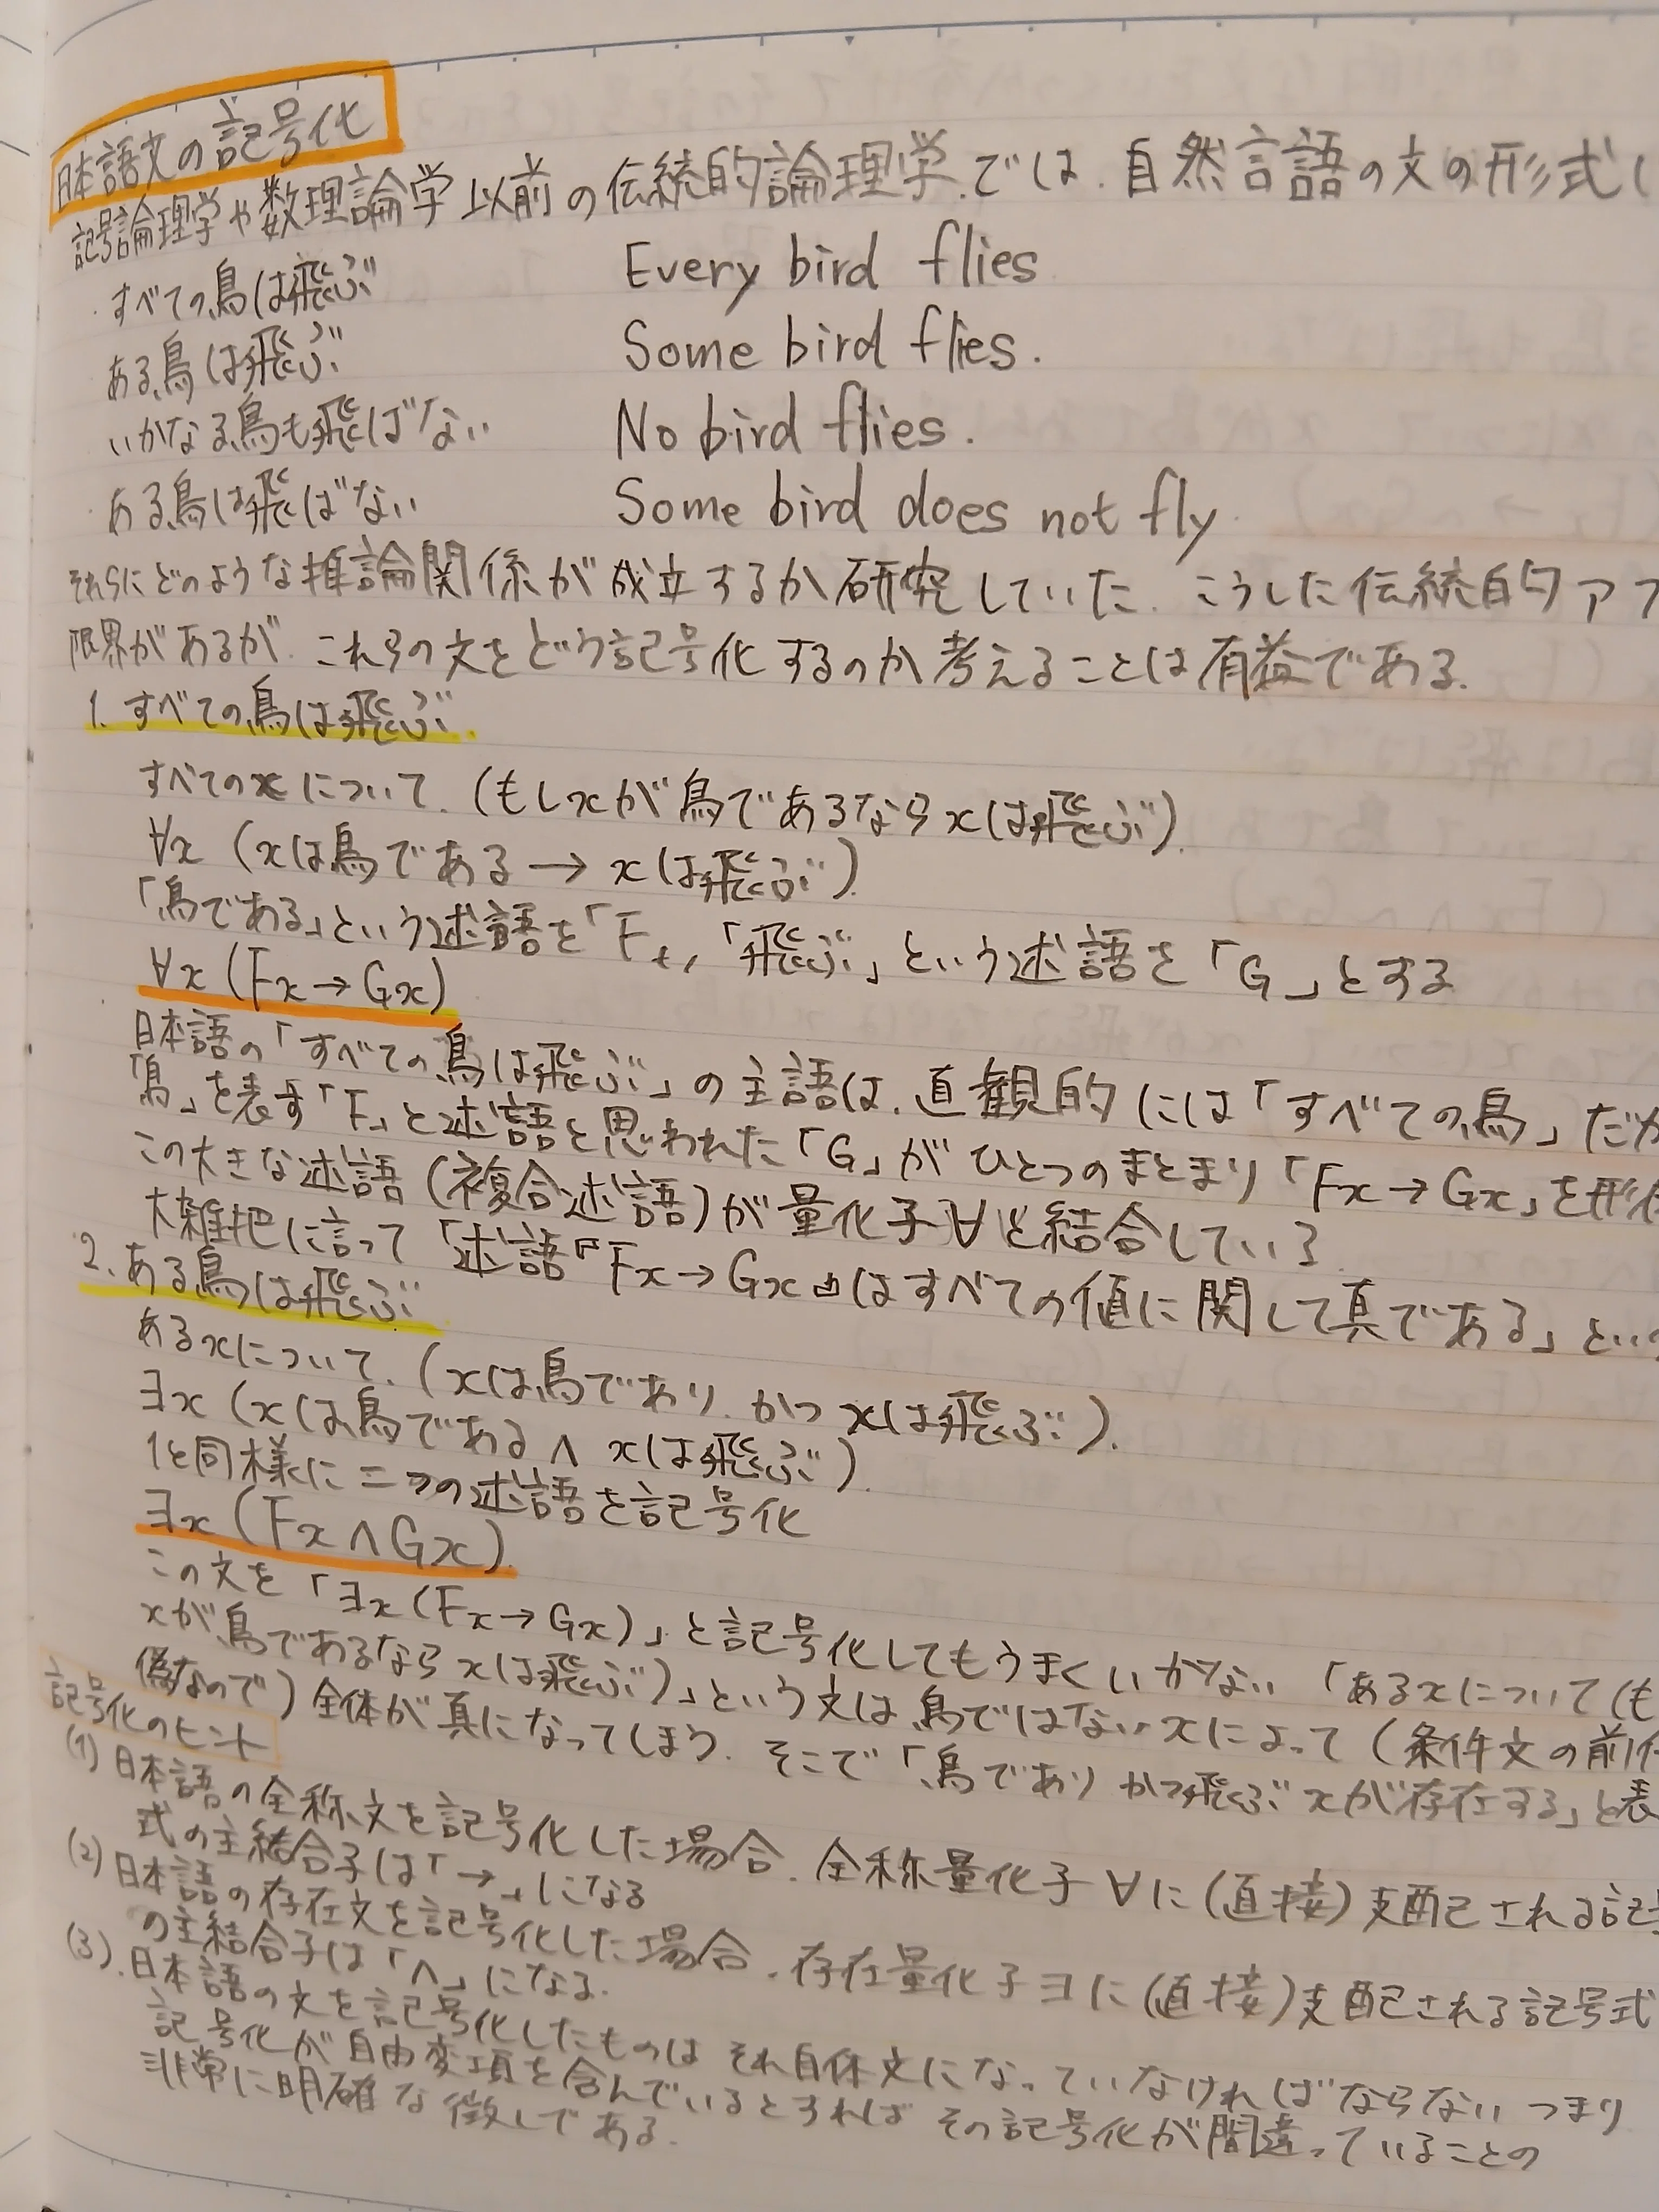 日本語文の記号化
記号論理学や数理論学以前の伝統的論理学では、自然言語の文の形式
すべての鳥は飛ぶ Every bird flies
ある鳥は飛ぶ Some bird flies.
いかなる鳥も飛ばない No bird flies.
ある鳥は飛ばない Some bird does not fly.
それらにどのような推論関係が成立するか研究していた。こうした伝統的アプ
限界があるが、これらの文をどう記号化するのか考えることは有益である。
1. すべての鳥は飛ぶ.
すべてのxについて、(もしxが鳥であるならxは飛ぶ).
∀x (xは鳥である → xは飛ぶ).
「鳥である」という述語を「F」、「飛ぶ」という述語を「G」とする
∀x (Fx → Gx)
日本語の「すべての鳥は飛ぶ」の主語は、直観的には「すべての鳥」だが
「鳥」を表す「F」と述語と思われた「G」がひとつのまとまり「Fx→Gx」を形
この大きな述語(複合述語)が量化子∀と結合している
大雑把に言って「述語『Fx→Gx』はすべての値に関して真である」とい
2. ある鳥は飛ぶ
あるxについて、(xは鳥であり、かつxは飛ぶ).
∃x (xは鳥である ∧ xは飛ぶ).
1と同様に二つの述語を記号化
∃x (Fx ∧ Gx).
この文を「∃x (Fx → Gx)」と記号化してもうまくいかない「あるxについて(も
xが鳥であるならxは飛ぶ)」という文は鳥ではないxによって(条件文の前件
偽なので)全体が真になってしまう。そこで「鳥でありかつ飛ぶxが存在する」と表
記号化のヒント
(1) 日本語の全称文を記号化した場合、全称量化子∀に(直接)支配される記号
式の主結合子は「→」になる
(2) 日本語の存在文を記号化した場合、存在量化子∃に(直接)支配される記号式
の主結合子は「∧」になる.
(3). 日本語の文を記号化したものはそれ自体文になっていなければならない つまり
記号化が自由変項を含んでいるとすればその記号化が間違っていることの
非常に明確な徴しである.